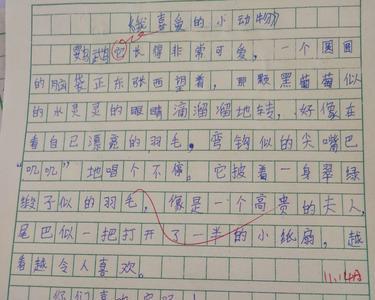 《我喜爱的小动物》
鹦鹉它长得非常可爱，一个圆圆
的脑袋正东张西望着，那颗黑葡萄似
的水灵灵的眼睛滴溜溜地转，好像在
看自己漂亮的羽毛，弯钩似的尖嘴巴
“叽叽”地唱个不停。它披着一身翠绿
缎子似的羽毛，像是一个高贵的夫人，
尾巴似一把打开了一半的小纸扇，越
看越令人喜欢。
11.14日